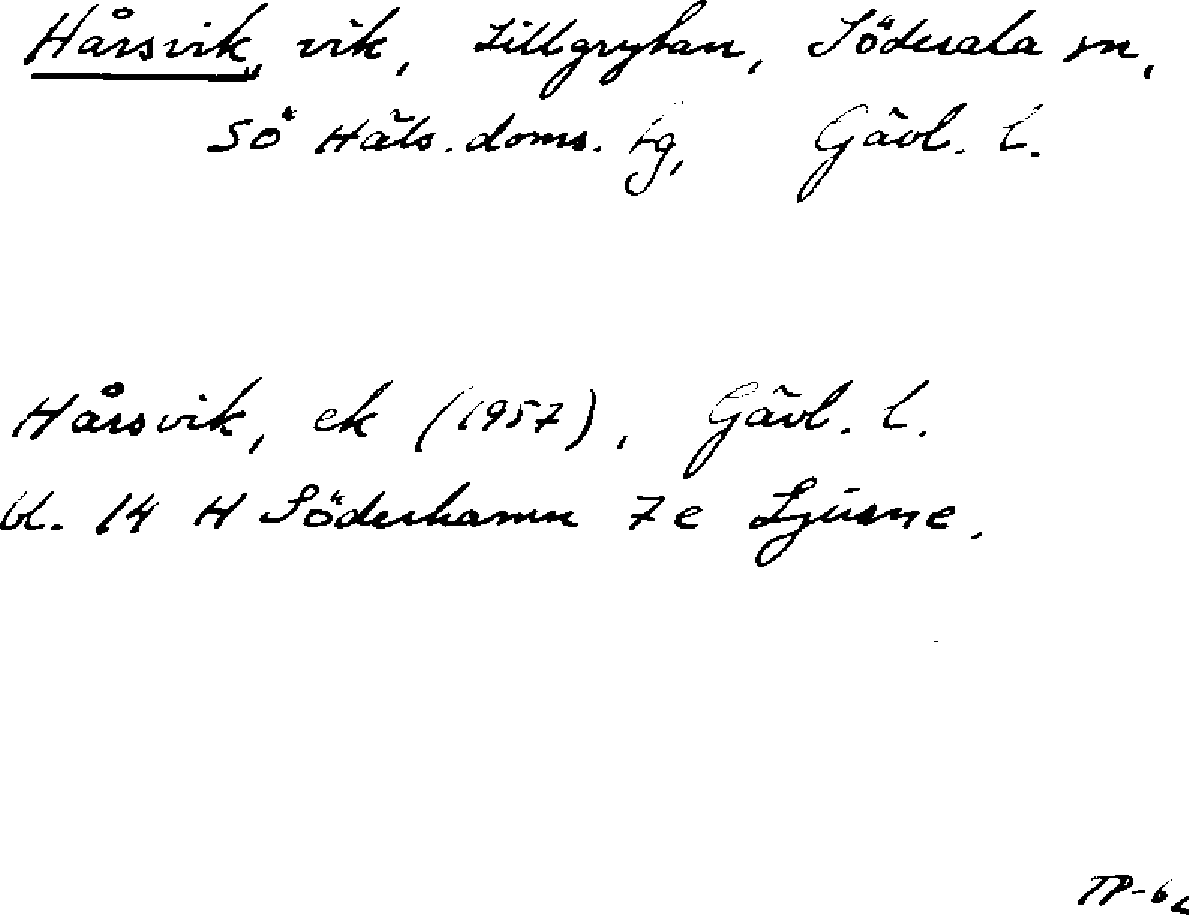 Hårsvik, vik, Lillgrytan, Söderala sn,
Sö Häls. doms. tg, Gävl. l.
Hårsvik, ek (1957), Gävl. l.
bl. 14 H Söderhamn 7 e Ljusne.
TP-62